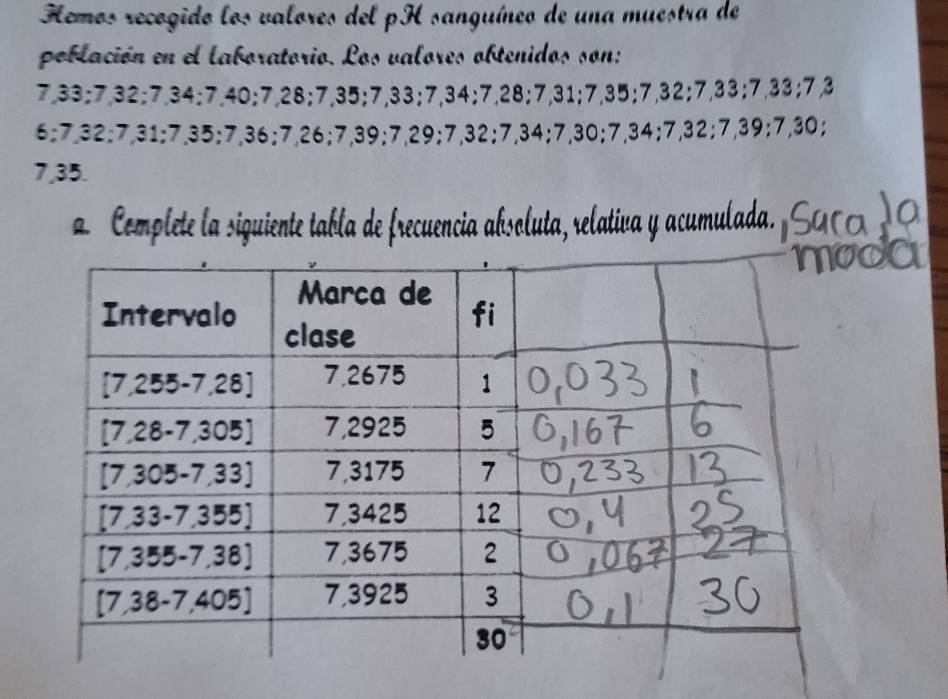 Hemos recogido los valores del pH sanguíneo de una muestra de
población en el laboratorio. Los valores obtenidos son:
7,33;7,32;7,34;7,40;7,28;7,35;7,33;7,34;7,28;7,31;7,35;7,32;7,33;7,33;7,3
6;7,32;7,31;7,35;7,36;7,26;7,39;7,29;7,32;7,34;7,30;7,34;7,32;7,39;7,30;
7,35.
a. Complete la siguiente tabla de frecuencia absoluta, relativa y acumulada. , Saca la
moda
Intervalo Marca de clase fi
[7,255-7,28] 7,2675 1 0,033 1
[7,28-7,305] 7,2925 5 0,167 6
[7,305-7,33] 7,3175 7 0,233 13
[7,33-7,355] 7,3425 12 0,4 25
[7,355-7,38] 7,3675 2 0,067 27
[7,38-7,405] 7,3925 3 0,1 30
30